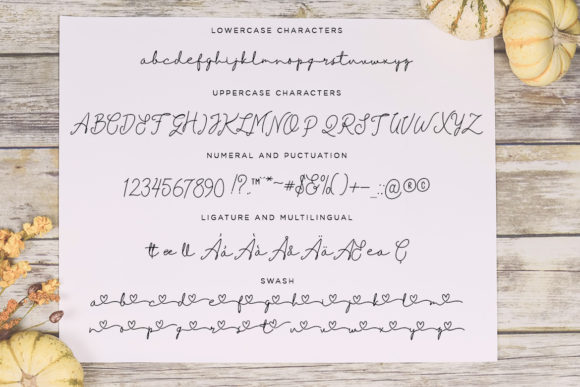 LOWERCASE CHARACTERS
abcdefghijklmnopqrstuvwxyz
UPPERCASE CHARACTERS
ABCDEFGHIJKLMNOPQRSTUVWXYZ
NUMERAL AND PUCTUATION
1234567890 !?.,™¨*~#$&%()+-_:;@®©
LIGATURE AND MULTILINGUAL
tt ee ll Áá Àà Åå Ää Æ Ç
SWASH
a b c d e f g h i j k l m
n o p q r s t u v w x y z